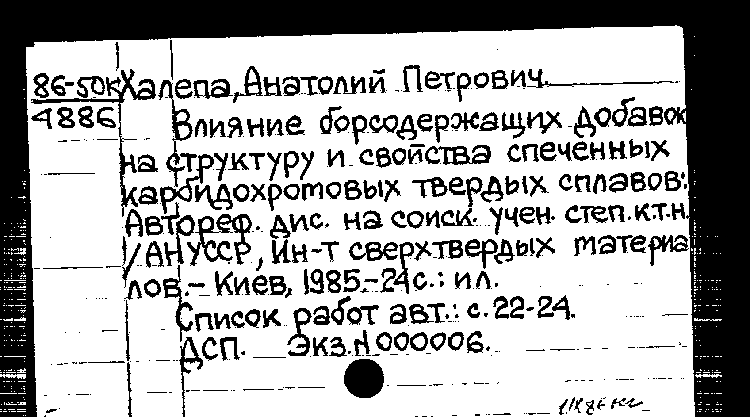 86-50к Халепа, Анатолий Петрович.
4886 Влияние борсодержащих добавок
на структуру и свойства спеченных
карбидохромовых твердых сплавов:
Автореф. дис. на соиск. учен. степ. к.т.н.
/АН УССР, Ин-т сверхтвердых материа
лов.- Киев, 1985.-24с.: ил.
Список работ авт.: с.22-24.
ДСП. Экз.N000006.